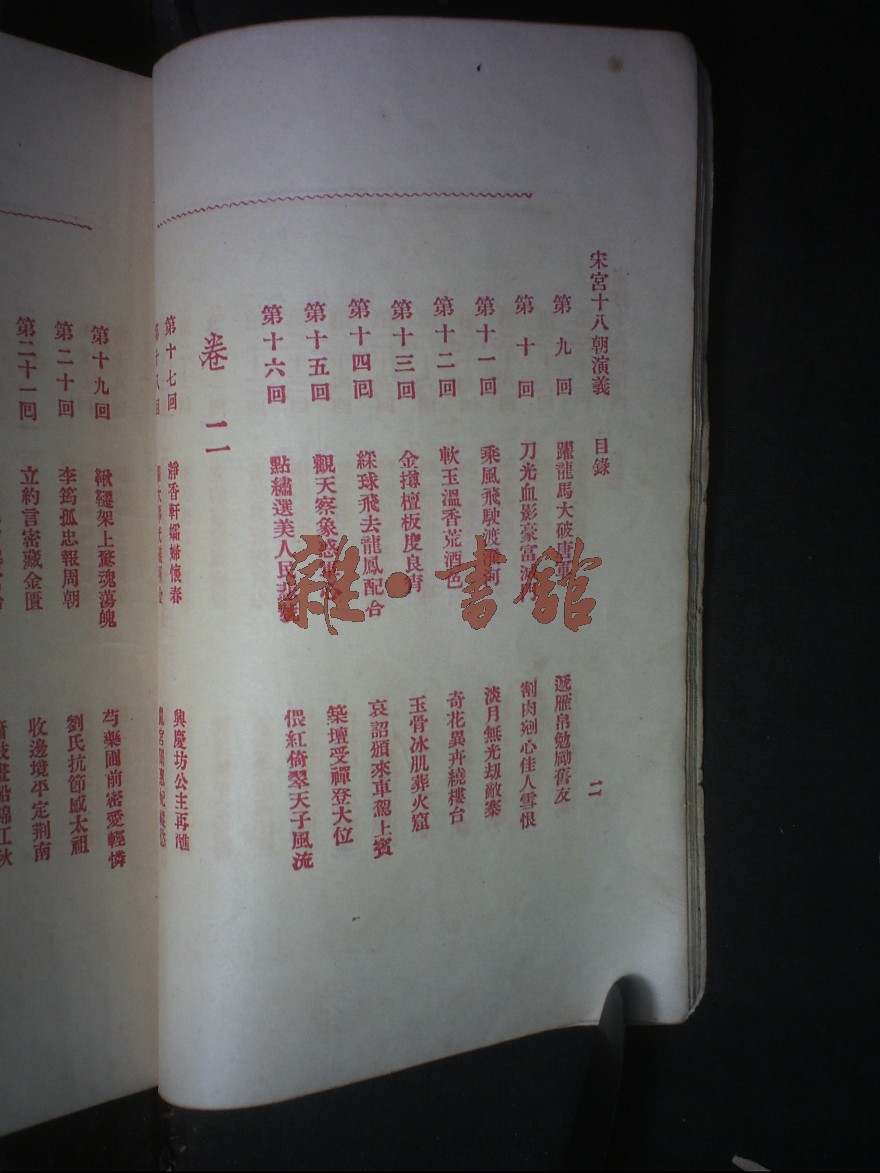 宋宮十八朝演義　目錄　二
第九回　躍龍馬大破唐　遞雁帛勉勵舊友
第十回　刀光血影豪富滅門　割肉剜心佳人雪恨
第十一回　乘風飛駛渡　河　淡月無光劫敵寨
第十二回　軟玉溫香荒酒色　奇花異卉繞樓台
第十三回　金撙檀板慶良宵　玉骨冰肌葬火窟
第十四回　綵球飛去龍鳳配合　哀詔頒來車駕上賓
第十五回　觀天察象惑　築壇受禪登大位
第十六回　點繡選美人民悲　偎紅倚翠天子風流
卷二
第十七回　靜香軒孀婦懷春　興慶坊公主再醮
第十八回
第十九回　鞦韆架上驚魂蕩魄　芍藥圃前密愛輕憐
第二十回　李筠孤忠報周朝　劉氏抗節感太祖
第二十一回　立約言密藏金匱　收邊境平定荆南
雜·書館